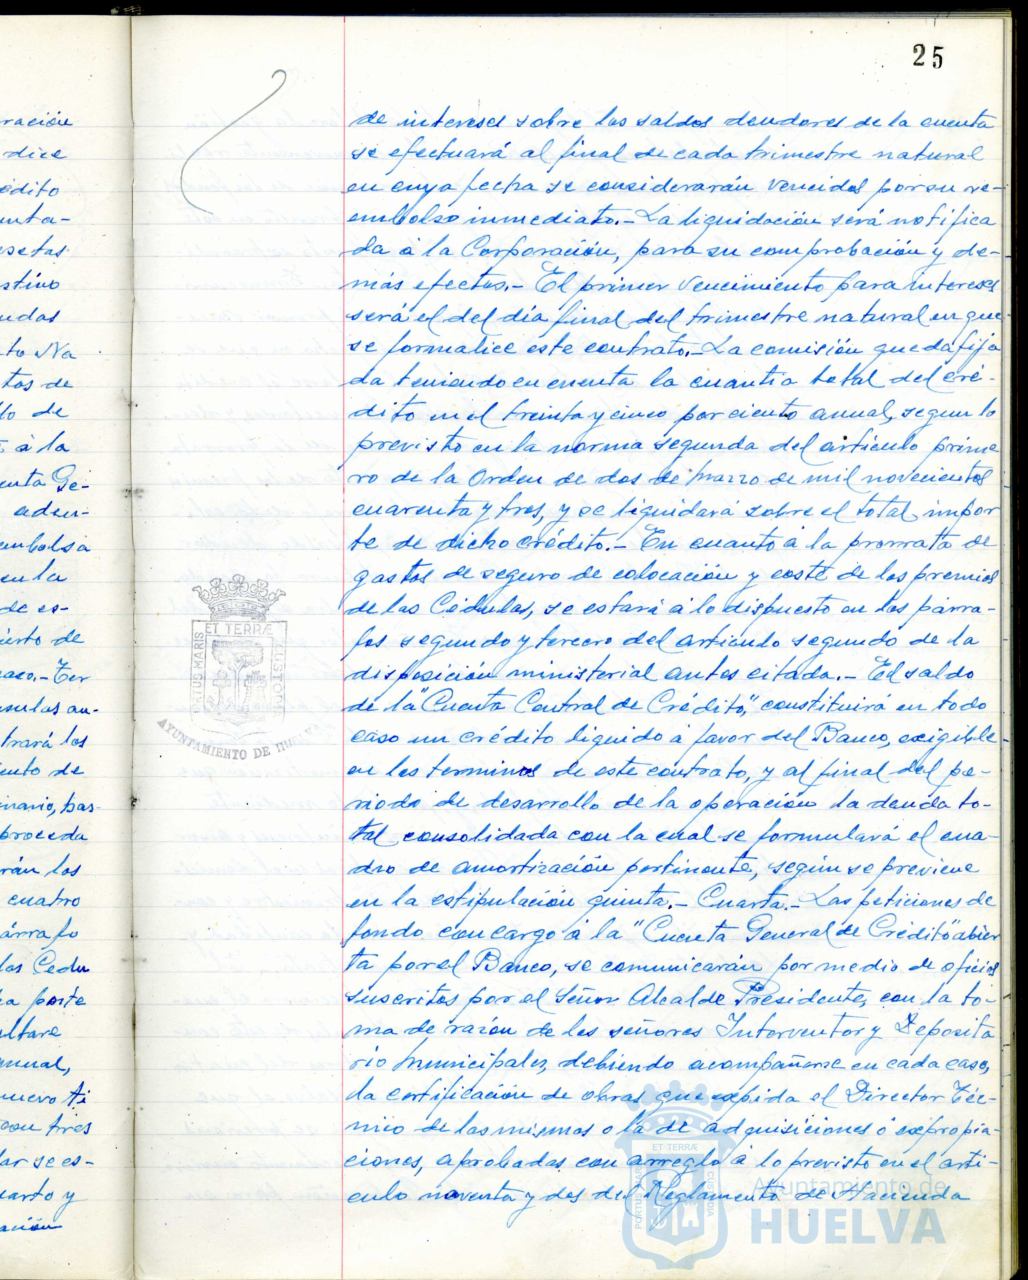 25
de intereses sobre los saldos deudores de la cuenta
se efectuará al final de cada trimestre natural
en cuya fecha se considerarán vencidos por su re-
embolso inmediato.- La liquidación será notifica
da á la Corporación, para su comprobación y de-
más efectos.- El primer vencimiento para intereses
será el del día final del trimestre natural en que
se formalice este contrato.- La comisión queda fija
da teniendo en cuenta la cuantia total del cré-
dito en el treinta y cinco por ciento anual, segun lo
previsto en la norma segunda del artículo prime
ro de la Orden de dos de Marzo de mil novecientos
cuarenta y tres, y se liquidará sobre el total impor
te de dicho crédito.- En cuanto á la prorrata de
gastos de seguro de colocación y coste de los premios
de las Cédulas, se estará á lo dispuesto en los párra-
fos segundo y tercero del artículo segundo de la
disposición ministerial antes citada.- El saldo
de la "Cuenta Central de Crédito", constituirá en todo
caso un crédito líquido á favor del Banco, exigible
en los terminos de este contrato, y al final del pe-
riodo de desarrollo de la operación la deuda to-
tal consolidada con la cual se formulará el cua-
dro de amortización pertinente, según se previene
en la estipulación quinta.- Cuarta.- Las peticiones de
fondo con cargo á la "Cuenta General de Crédito" abier
ta por el Banco, se comunicarán por medio de oficios
suscritos por el Señor Alcalde Presidente, con la to-
ma de razón de los señores Interventor y Deposita
rio Municipales, debiendo acompañarse en cada caso,
la certificación de obras que expida el Director Téc-
nico de las mismas o la de adquisiciones ó expropia-
ciones, aprobadas con arreglo a lo previsto en el artí-
culo noventa y dos del Reglamento de Hacienda
ración
dice
édito
unta-
esetas
stino
udas
to Na
tos de
lo de
á la
enta Ge-
aden-
embolsa
en la
de es-
ierto de
aso.- Ter
nsulas an-
trará los
ento de
inario, pas-
proceda
rán los
cuatro
árrafo
las Cedu
ha parte
ultare
anual,
nuevo ti
con tres
lar se es-
uarto y
ación
PORTUS MARIS ET TERRÆ CUSTODIA
AYUNTAMIENTO DE HUELVA
Ayuntamiento de
HUELVA